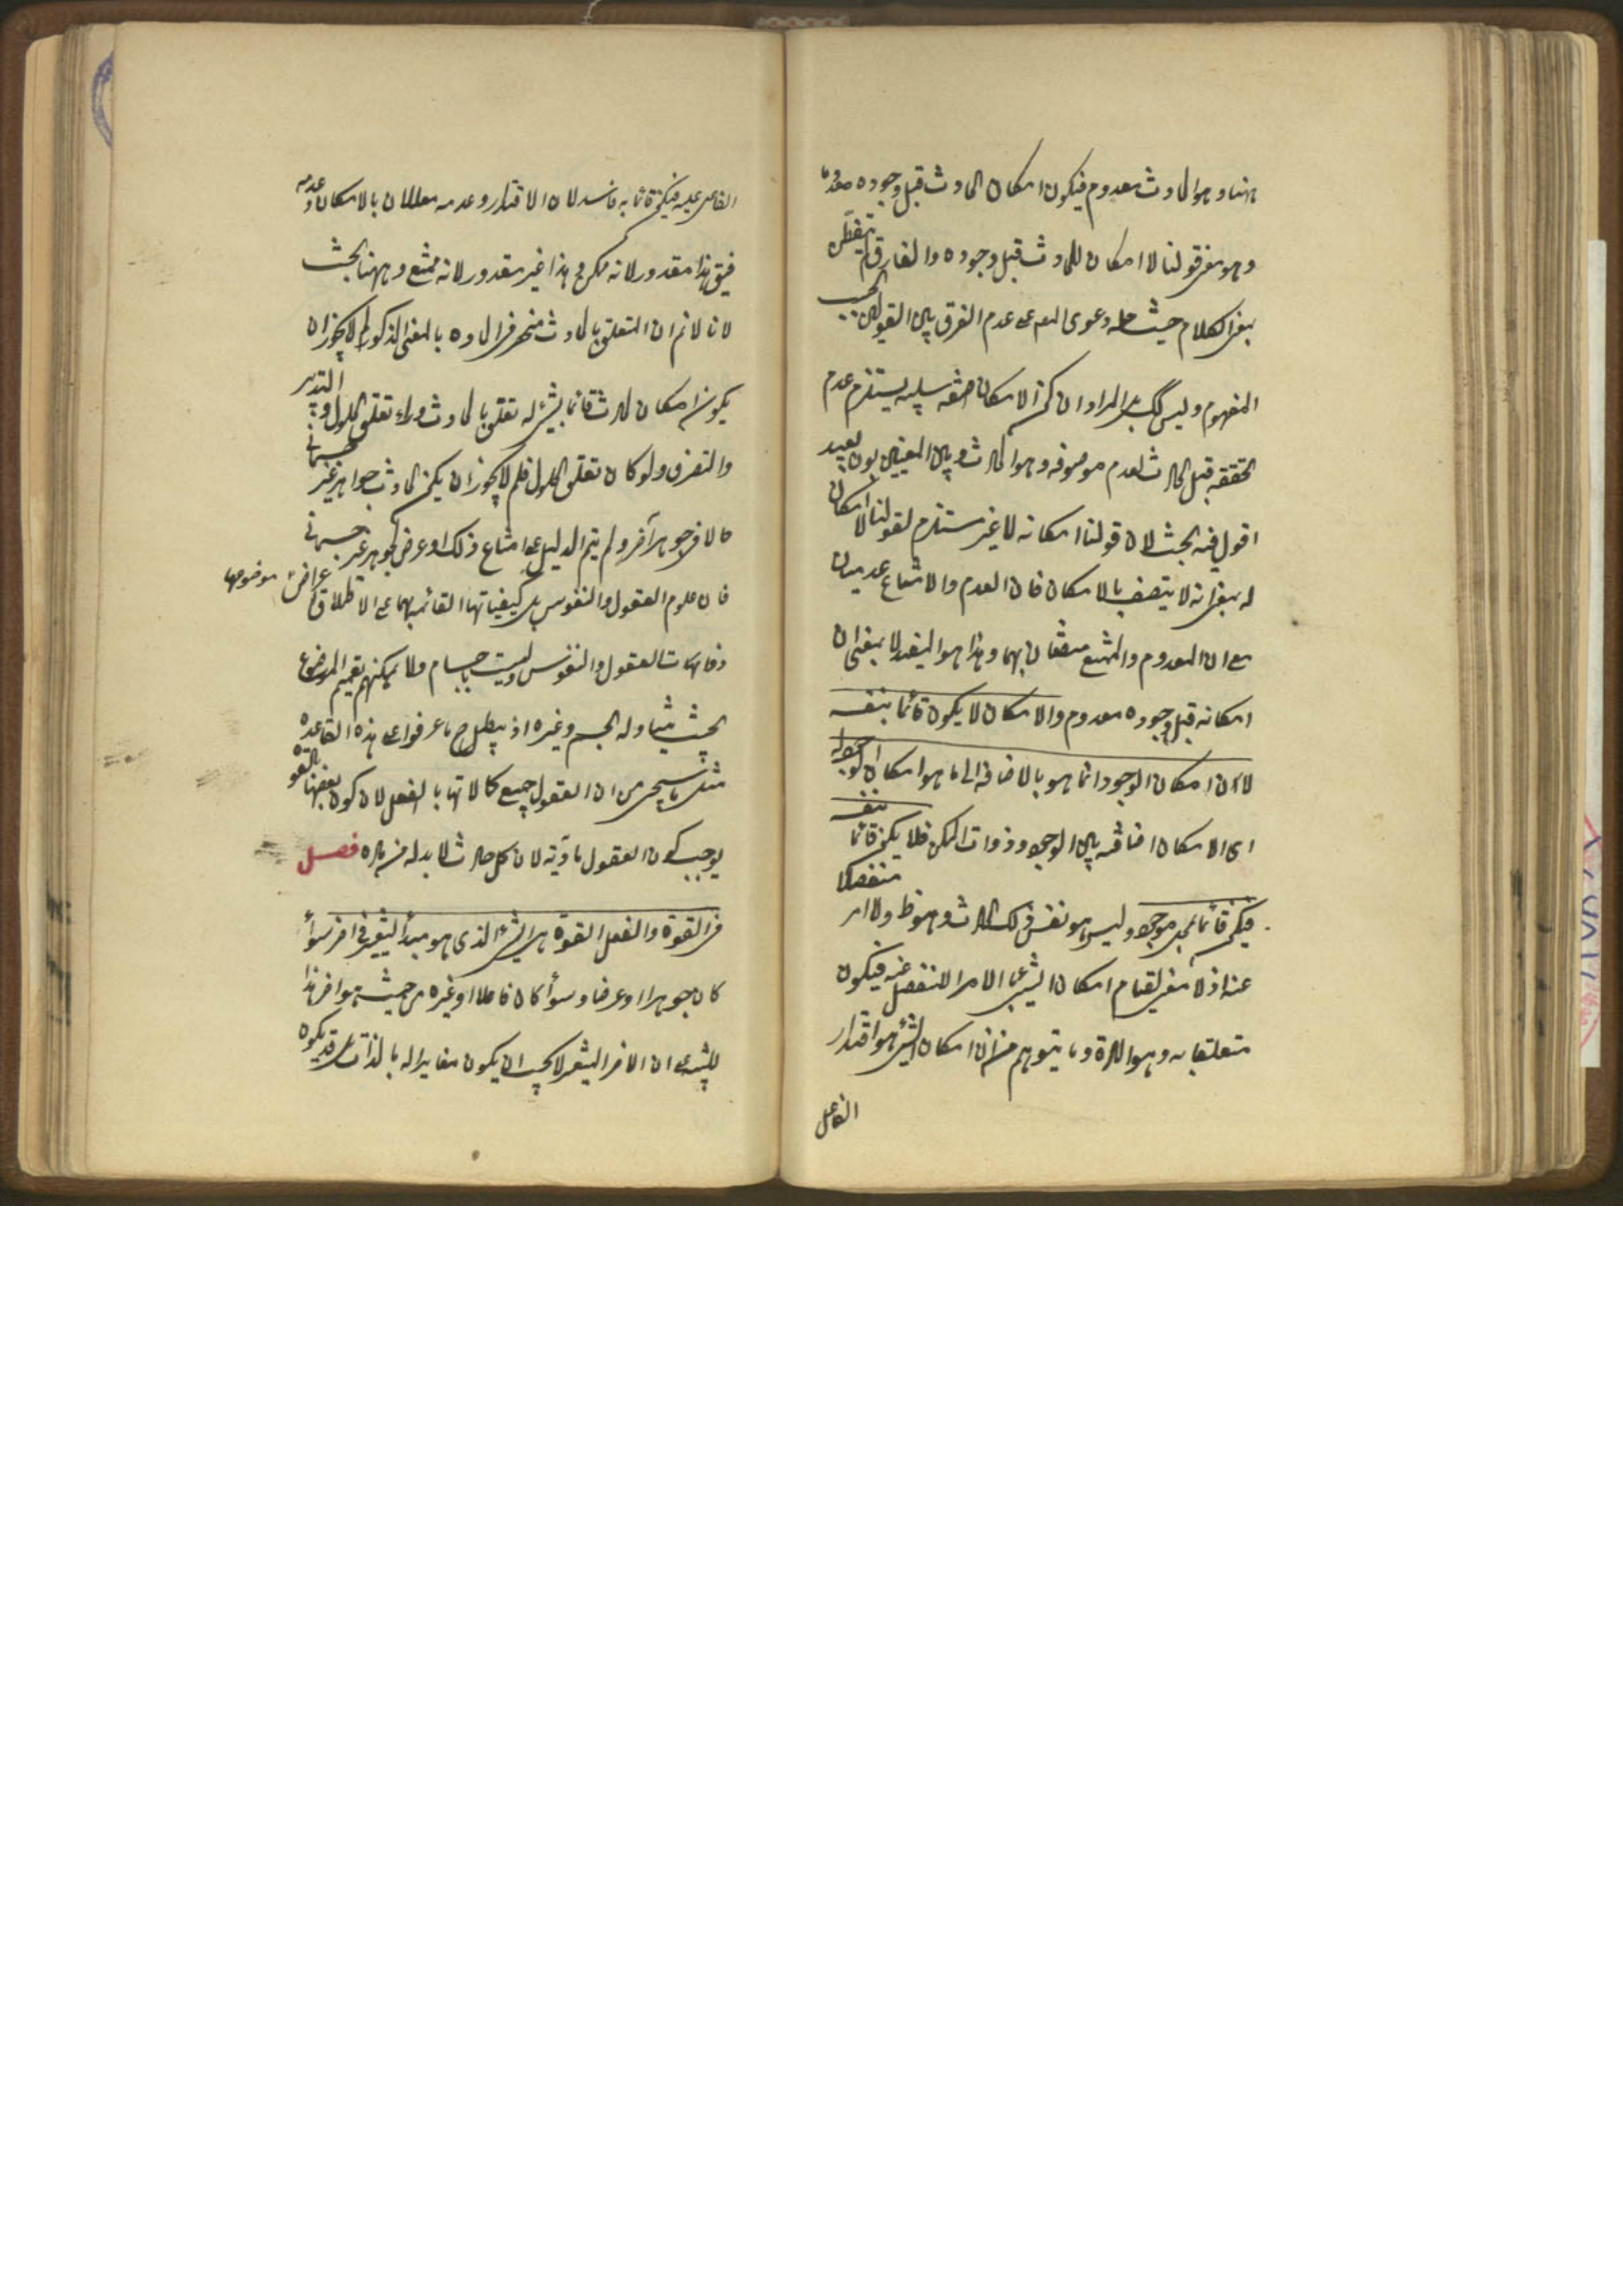 ههنا و هو الحادث معدوم فيكون امكان الحادث قبل وجوده معدوما
و هو معنى قولنا لا امكان للحادث قبل وجوده و الفارق لم يتفطن
بمعنى الكلام حيث حمله دعوى المص على عدم الفرق بين القولين بحسب
المفهوم و ليس كك بل المراد ان كون الامكان صفة سلبية يستلزم عدم
تحققه قبل الحادث لعدم موصوفه و هو الحادث و بين المعنيين بون بعيد
اقول فيه بحث لان قولنا امكانه لا غير مستلزم لقولنا لا امكان
له بمعنى انه لا يتصف بالامكان فان العدم و الامتناع عدميان
مع ان المعدوم و الممتنع متصفان بهما و هذا هو المفيد لا بمعنى ان
امكانه قبل وجوده معدوم و الامكان لا يكون قائما بنفسه
لان امكان الوجود انما هو بالاضافة الى ما هو امكان الوجود له
اى الامكان اضافة بين الوجود و ذوات الممكن فلا يكون قائما بنفسه
فيكون قائما بمحل موجود و ليس هو نفس ذلك الحادث و هو ظ و لا امر منفصلا
عنه اذ لا معنى لقيام امكان الشىء بالامر المنفصل عنه فيكون
متعلقا به و هو المادة و ما يتوهم من ان امكان الشىء هو اقتدار
الفاعل
الفاعل عليه فيكون قائما به فاسد لان الاقتدار و عدمه معللان بالامكان و عدمه
فيق هذا مقدور لانه ممكن و هذا غير مقدور لانه ممتنع و ههنا بحث
لانا لا نم ان المتعلق بالحادث منحصر فى المادة بالمعنى المذكور لم لا يجوز ان
يكون امكان الحادث قائما بشىء له تعلق بالحادث وراء تعلق الحلول و التدبير
و التصرف و لو كان تعلق الحلول فلم لا يجوز ان يكون الحادث جوهرا غير جسمانى
حالا فى جوهر آخر و لم يتم الدليل على امتناع ذلك او عرض لجوهر غير جسمانى
فان علوم العقول و النفوس بل كيفياتها القائمة بهما على الاطلاق اعراض موضوعها
ذوات العقول و النفوس و ليست باجسام و لا يمكنهم تعميم الموضوع
بحيث يتناول الجسم و غيره اذ يبطل ح ما عرفوا على هذه القاعدة
مثل ما سيجىء من ان العقول جميع كمالاتها بالفعل لان كون بعضها بالقوة
يوجب كون العقول مادية لان كل حادث لا بد له من مادة فصل
فى القوة و الفعل القوة هى الشىء الذى هو مبدأ التغير فى اخر سواء
كان جوهرا او عرضا و سواء كان فاعلا او غيره من حيث هو اخر هذا
للتنبيه على ان الاخر المتغير لا يجب ان يكون مغايرا له بالذات بل قد يكون